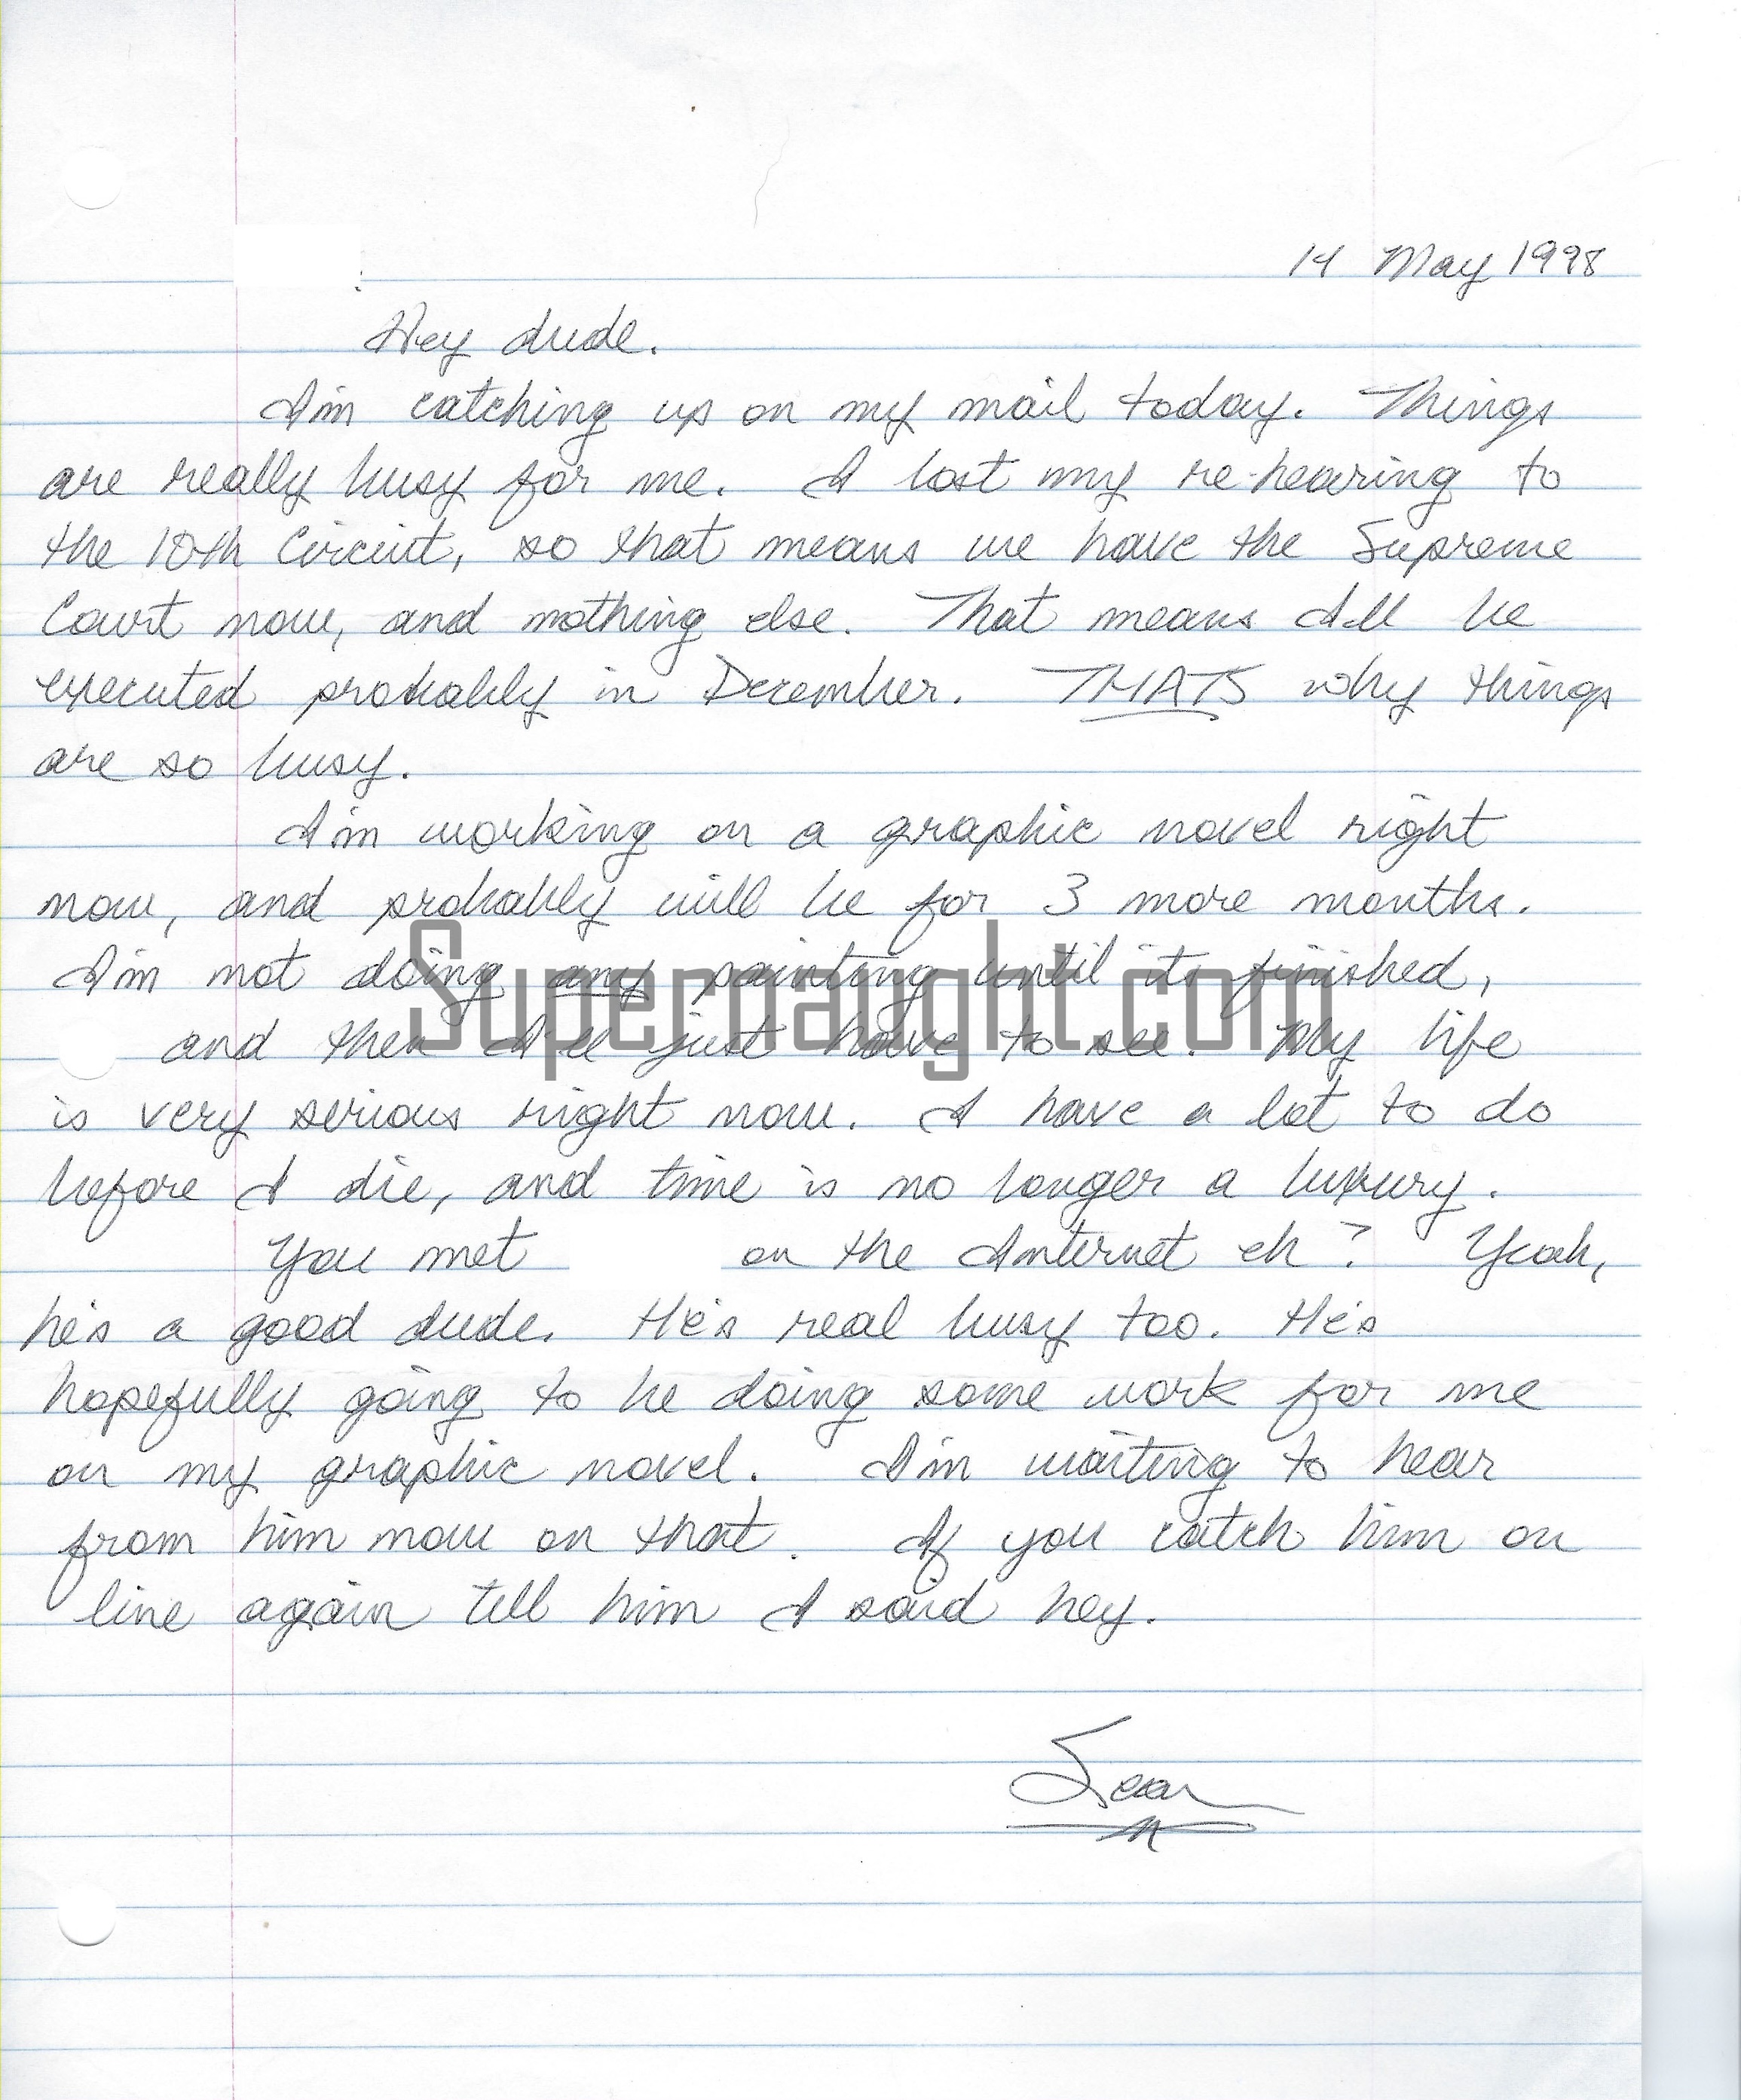 14 May 1998
Hey dude.
I'm catching up on my mail today. Things
are really busy for me. I lost my re-hearing to
the 10th Circuit, so that means we have the Supreme
Court now, and nothing else. That means I'll be
executed probably in December. THATS why things
are so busy.
I'm working on a graphic novel right
now, and probably will be for 3 more months.
I'm not doing any painting until its finished,
Supernaught.com
and then I'll just have to see. My life
is very serious right now. I have a lot to do
before I die, and time is no longer a luxury.
You met on the Internet eh? Yeah,
he's a good dude. He's real busy too. He's
hopefully going to be doing some work for me
on my graphic novel. I'm waiting to hear
from him now on that. If you catch him on
line again tell him I said hey.
Sean